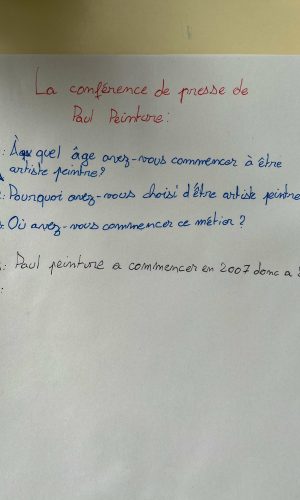 La conférence de presse de
Paul Peinture:
: À quel âge avez-vous commencer à être
artiste peintre?
: Pourquoi avez-vous choisi d'être artiste peintre
Où avez-vous commencer ce métier ?
: Paul peinture a commencer en 2007 donc a
: